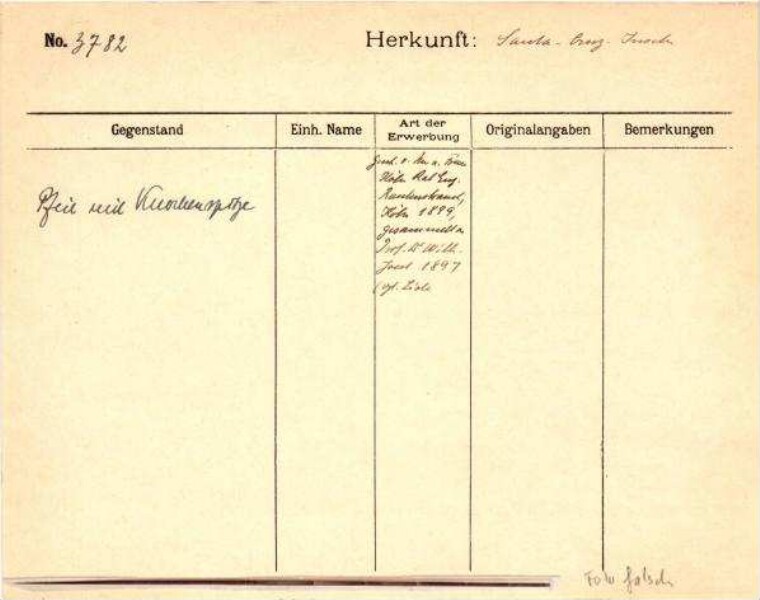 No. 3782
Herkunft: Santa-Cruz-Inseln
Gegenstand
Einh. Name
Art der
Erwerbung
Originalangaben
Bemerkungen
Pfeil mit Knochenspitze
Gesch. v. Frau
Köln
Rautenstrauch,
Köln 1899,
gesammelt v.
Prof. Dr Wilh.
Joest 1897
(vgl. Liste
Foto falsch